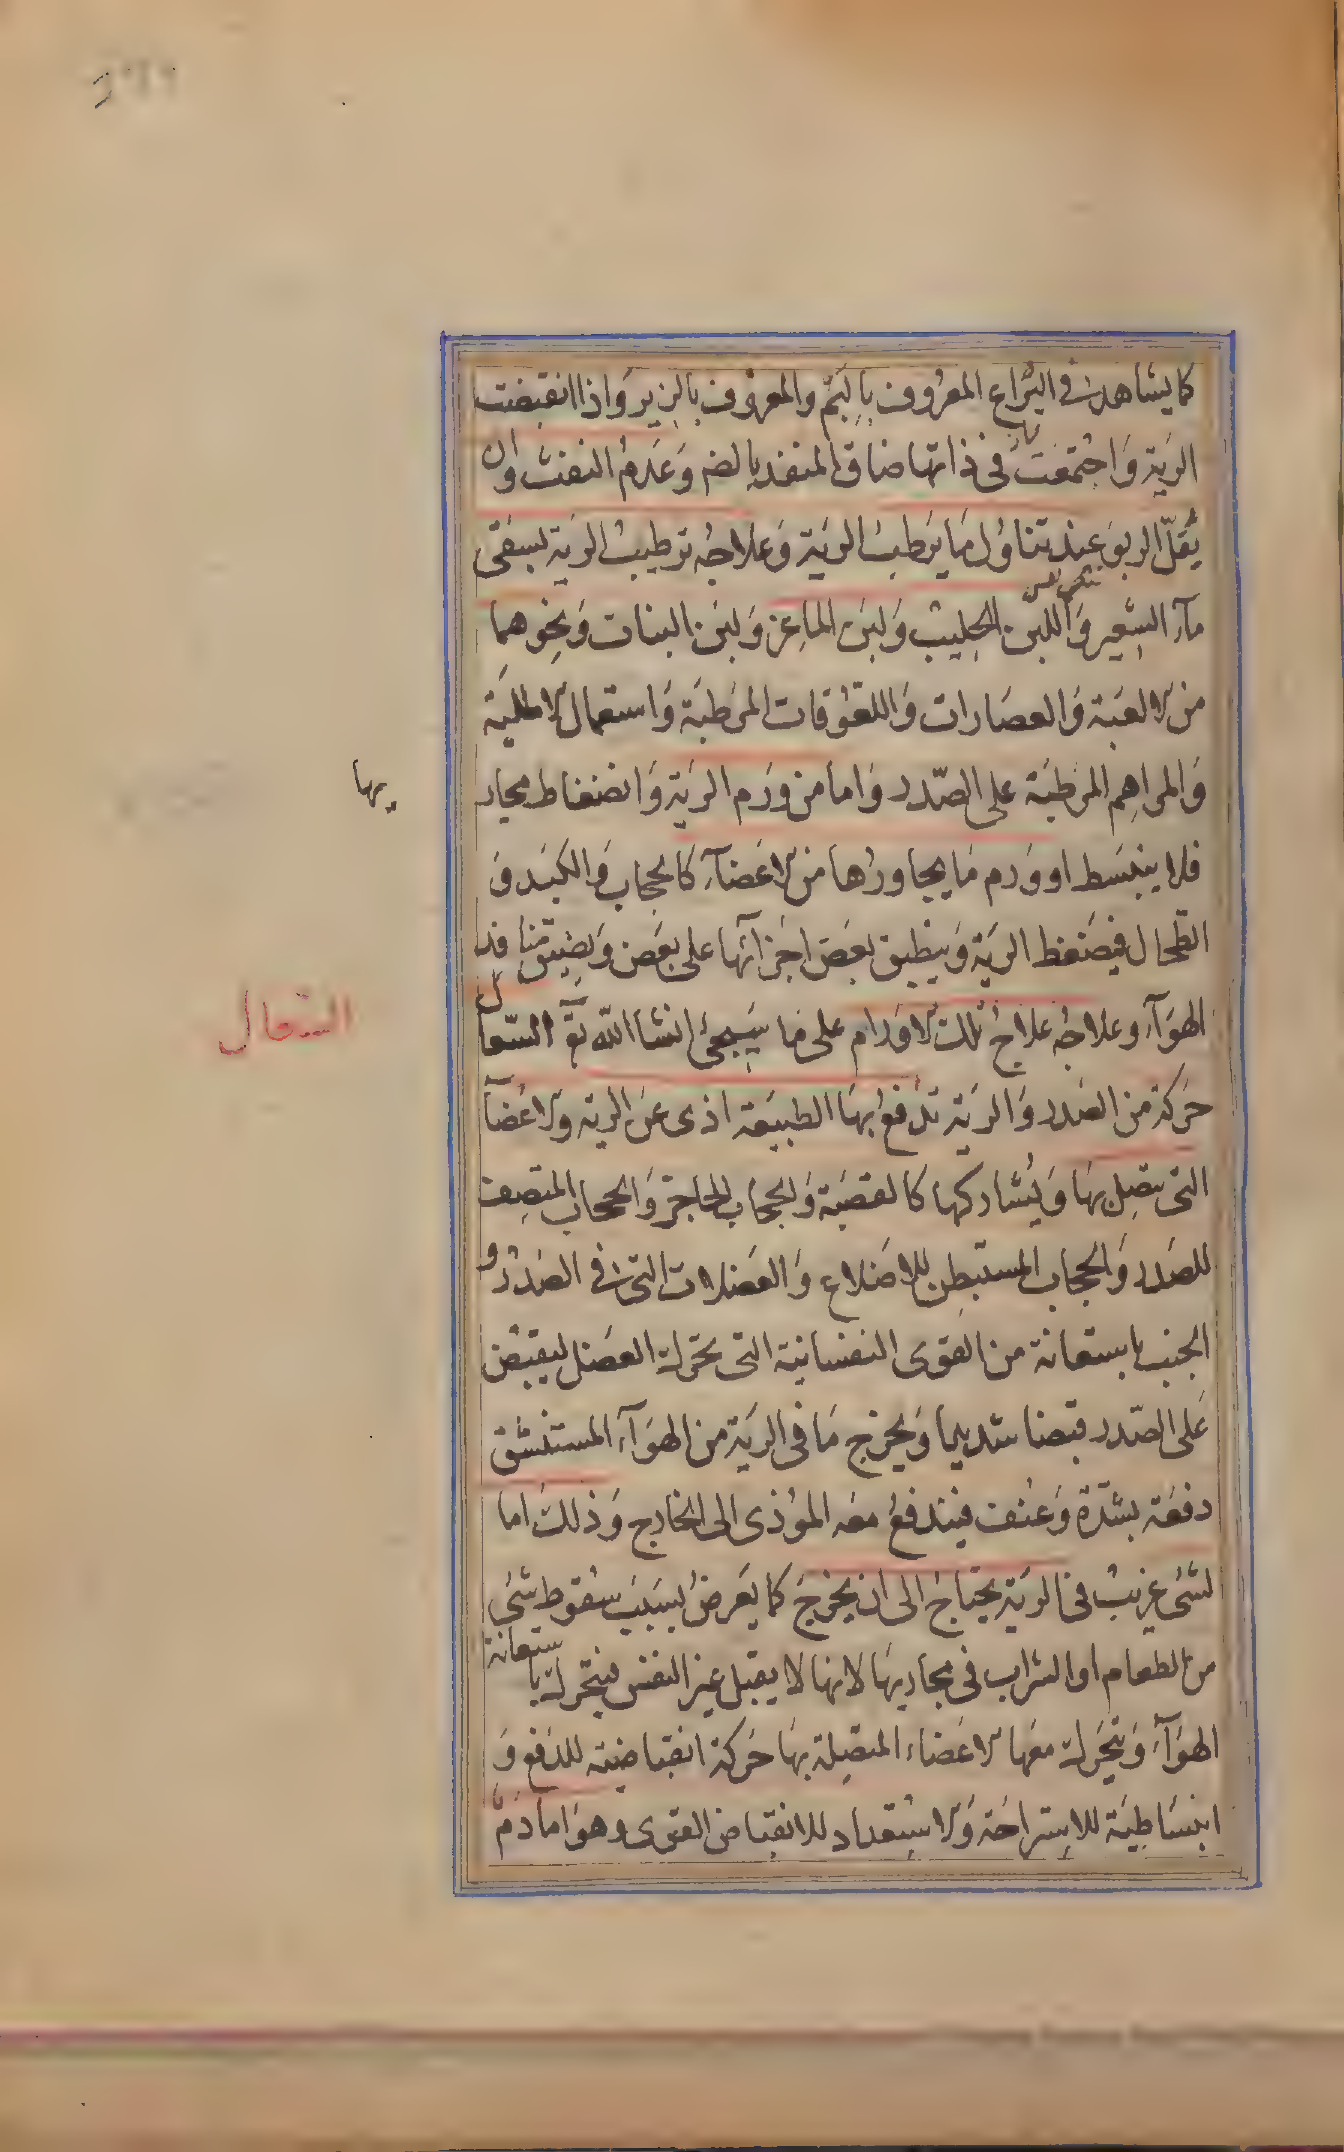 كما يشاهد فى اليراع المعروف بالبم والمعروف بالزير واذا انقبضت
الرية واجتمعت فى ذاتها ضاق المنفذ بالضم وعدم النفث وان
يقل الربو عند تناول ما يرطب الرية وعلاجه ترطيب الرية بسقى
مآء الشعير واللبن الحليب ولبن الماعز ولبن البنات ونحوهما
من الالعبة والعصارات واللعوقات المرطبة واستعمال الاطلية
والمراهم المرطبة على الصدر واما من ورم الرية وانضغاط مجار
يها
فلا ينبسط او ورم ما يجاورها من الاعضآء كالحجاب والكبد و
الطحال فيضغط الرية وينطبق بعض اجزآئها على بعض ويضيق منافذ
الهوآء وعلاجه علاج تلك الاورام على ما سيجئ انشا الله تع السعال
السعال
حركة من الصدر والرية تدفع بها الطبيعة اذى عن الرية والاعضآ
التى تتصل بها ويشاركها كالقصبة والحجاب الحاجز والحجاب المنصف
للصدر والحجاب المستبطن للاضلاع والعضلات التى فى الصدر و
الجنب باستعانة من القوى النفسانية التى تحرك العضل ليقبض
على الصدر قبضا شديدا ويخرج ما فى الرية من الهوآء المستنشق
دفعة بشدة وعنف فيندفع معه المؤذى الى الخارج وذلك اما
لشئ غريب فى الرية يحتاج الى ان يخرج كما يعرض بسبب سقوط شئ
من الطعام او الشراب فى مجاريها لانها لا يقبل غير النفس فيتحرك باستعانة
الهوآء ويتحرك معها الاعضاء المتصلة بها حركة انقباضية للدفع و
انبساطية للاستراحة والاستعداد للانقباض القوى وهو اما دم